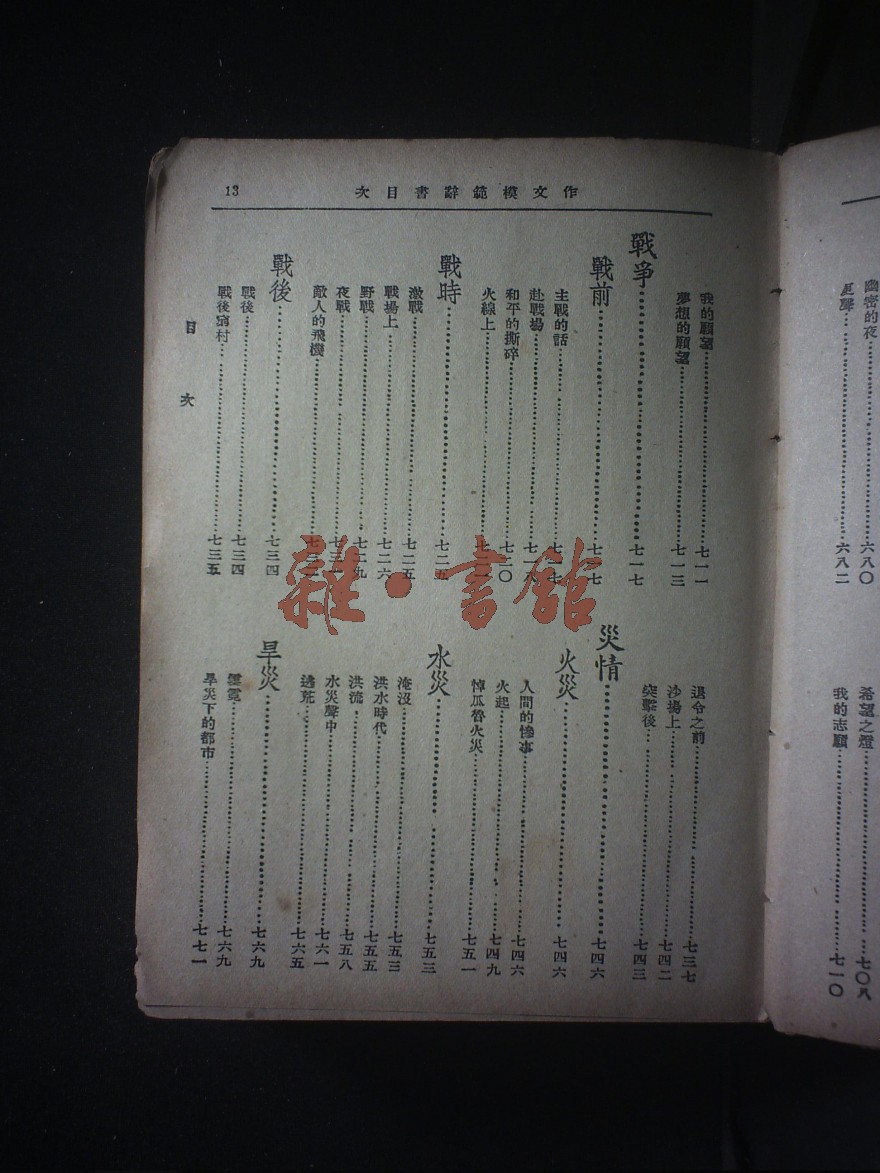 作文模範辭書目次
13
我的願望 七一一
夢想的願望 七一三
戰爭 七一七
戰前 七一七
主戰的話 七一七
赴戰場 七一八
和平的撕碎 七二〇
火線上
戰時 七二五
激戰 七二五
戰場上 七二六
野戰 七二九
夜戰 七三一
敵人的飛機
戰後 七三四
戰後 七三四
戰後窮村 七三五
退令之前 七三七
沙場上 七四二
突擊後 七四三
災情 七四六
火災 七四六
人間的慘事 七四六
火起 七四九
悼瓜魯火災 七五一
水災 七五三
淹沒 七五三
洪水時代 七五五
洪流 七五八
水災聲中 七六一
逃荒 七六五
旱災 七六九
雲霓 七六九
旱災下的都市 七七一
目次
幽密的夜 六八〇
更聲 六八二
希望之燈 七〇八
我的志願 七一〇
雜·書館